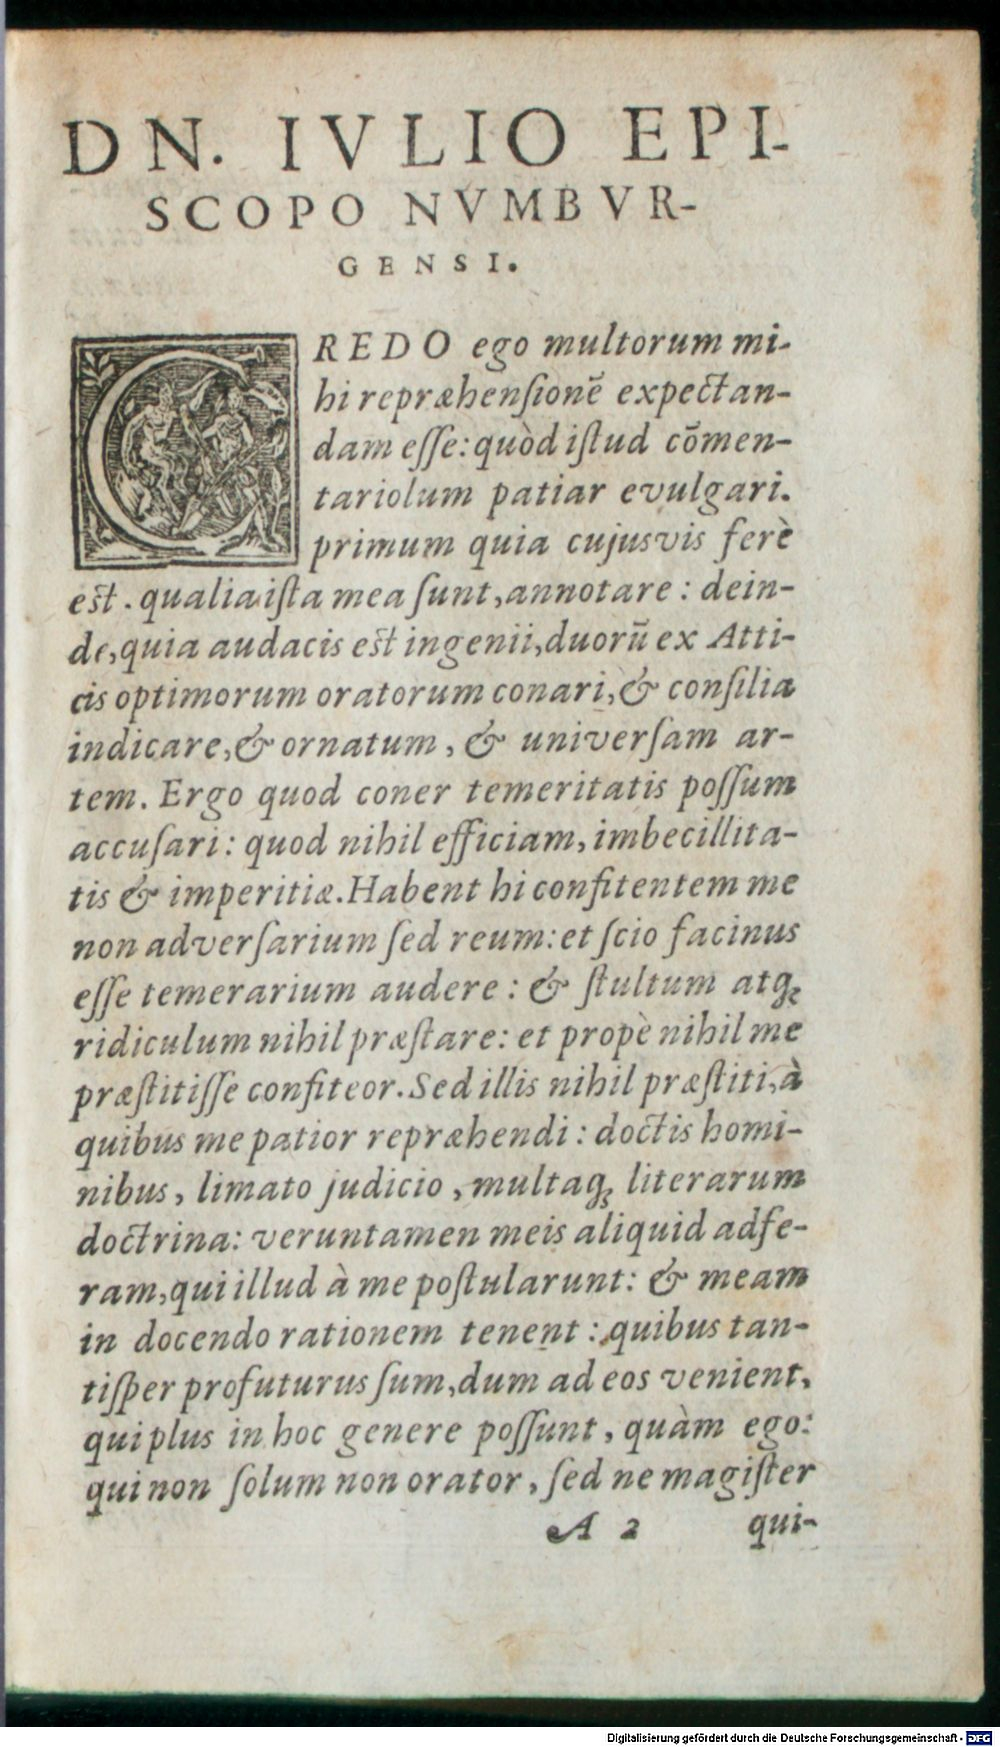 DN. IVLIO EPI-
SCOPO NVMBVR-
GENSI.
CREDO ego multorum mi-
hi repræhenſionē expectan-
dam eſſe: quòd iſtud cōmen-
tariolum patiar evulgari.
primum quia cujusvis ferè
est. qualia iſta mea ſunt, annotare: dein-
de, quia audacis est ingenii, duorū ex Atti-
cis optimorum oratorum conari, & conſilia
indicare, & ornatum, & univerſam ar-
tem. Ergo quod coner temeritatis poſſum
accuſari: quod nihil efficiam, imbecillita-
tis & imperitiæ. Habent hi confitentem me
non adverſarium ſed reum: et ſcio facinus
eſſe temerarium audere: & ſtultum atq;
ridiculum nihil præſtare: et propè nihil me
præſtitiſſe confiteor. Sed illis nihil præſtiti, à
quibus me patior repræhendi: doctis homi-
nibus, limato judicio, multaq; literarum
doctrina: veruntamen meis aliquid adfe-
ram, qui illud à me poſtularunt: & meam
in docendo rationem tenent: quibus tan-
tiſper profuturus ſum, dum ad eos venient,
qui plus in hoc genere poſſunt, quàm ego:
qui non ſolum non orator, ſed ne magiſter
A 2 qui-
Digitalisierung gefördert durch die Deutsche Forschungsgemeinschaft - DFG